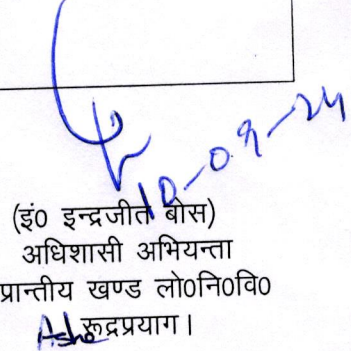 10-09-24
(इं० इन्द्रजीत बोस)
अधिशासी अभियन्ता
प्रान्तीय खण्ड लो०नि०वि०
रूद्रप्रयाग।